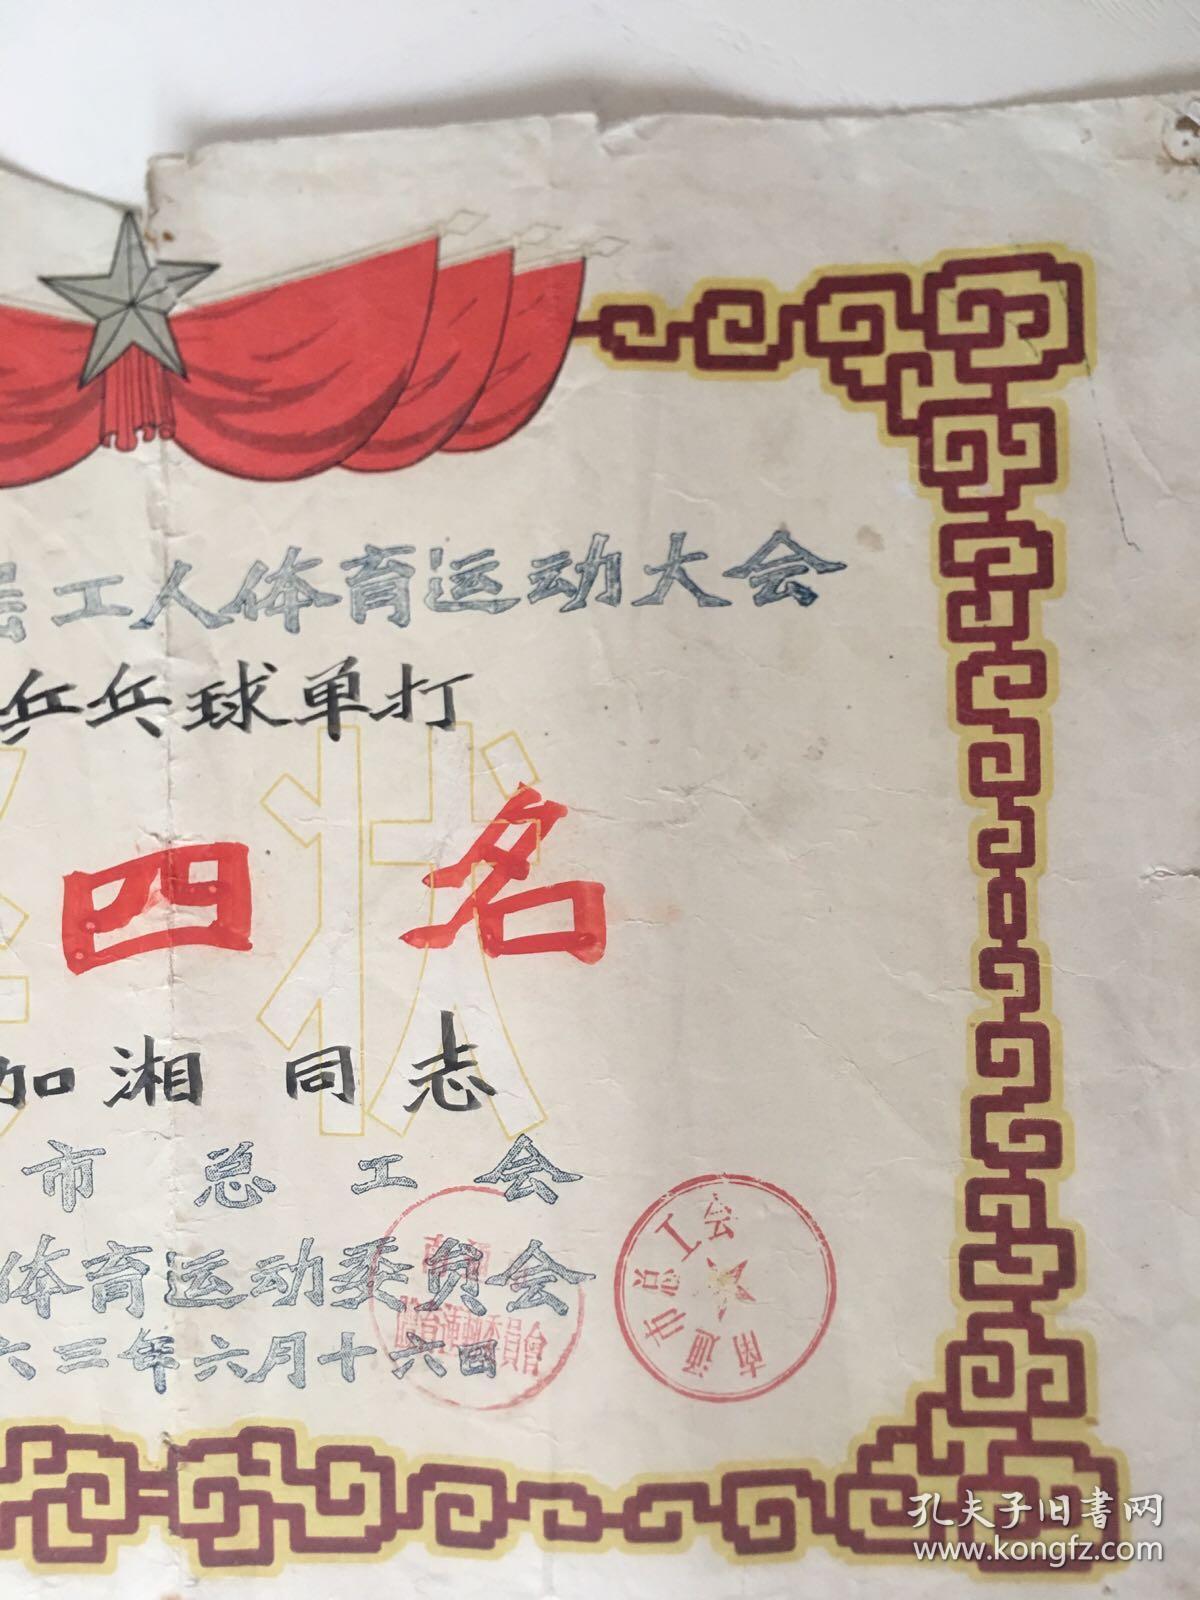 工人体育运动大会
乒乓球单打
奖状
四名
加湘 同志
市总工会
体育运动委员会
六三年六月十六日
南通市总工会
体育運動委員會
孔夫子旧書网
www.kongfz.com